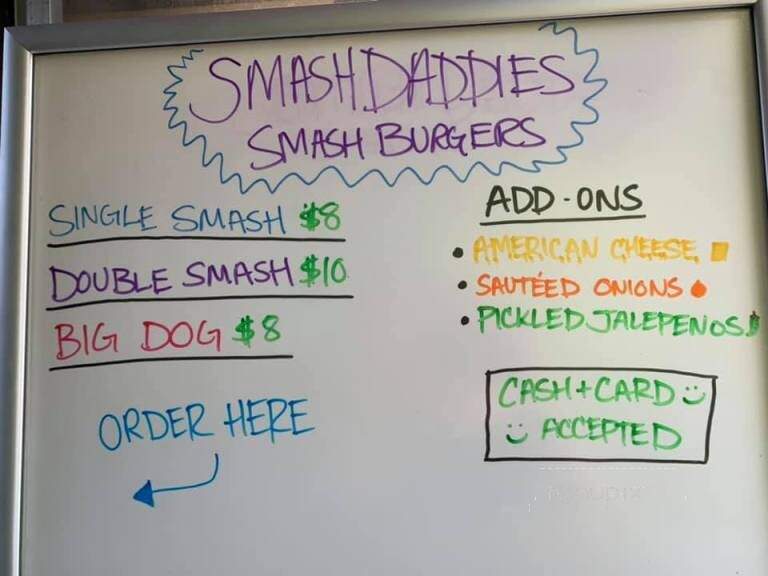 SMASH DADDIES
SMASH BURGERS
SINGLE SMASH $8
DOUBLE SMASH $10
BIG DOG $8
ORDER HERE
ADD-ONS
• AMERICAN CHEESE
• SAUTÉED ONIONS
• PICKLED JALEPENOS
CASH + CARD
ACCEPTED